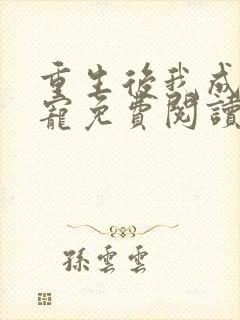 重生後我成
寵免費閱讀
孫雲雲